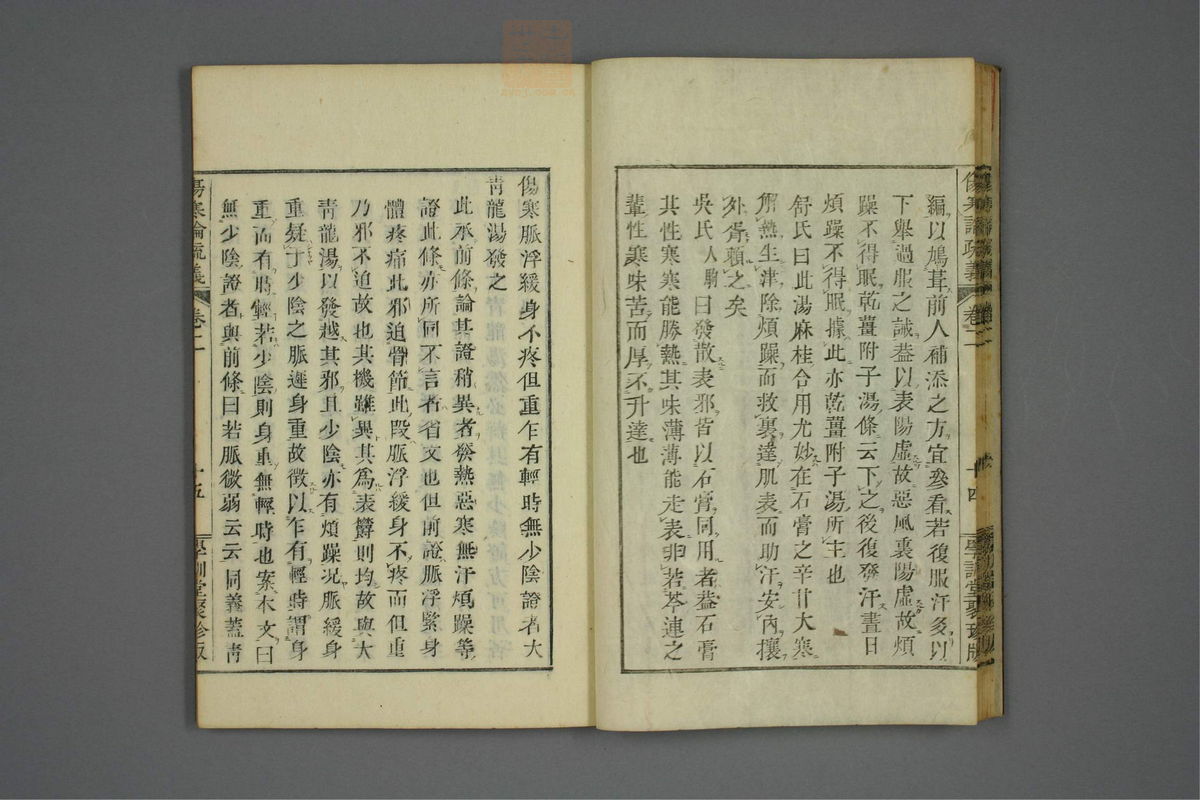 編以鳩葺前人補添之方宜參看若復服汗多以
下舉過服之誡葢以表陽虛故惡風裏陽虛故煩
躁不得眠乾薑附子湯條云下之後復發汗晝日
煩躁不得眠據此亦乾薑附子湯所主也
舒氏曰此湯麻桂合用尤妙在石膏之辛甘大寒
解熱生津除煩躁而救裏達肌表而助汗安內攘
外胥賴之矣
吳氏人駒曰發散表邪皆以石膏同用者葢石膏
其性寒寒能勝熱其味薄薄能走表非若芩連之
輩性寒味苦而厚不升達也
傷寒論疏義
卷二
十四
學訓堂聚珍版
傷寒脈浮緩身不疼但重乍有輕時無少陰證者大
青龍湯發之
此承前條論其證稍異者發熱惡寒無汗煩躁等
證此條亦所同不言者省文也但前證脈浮緊身
體疼痛此邪迫骨節此段脈浮緩身不疼而但重
乃邪不迫故也其機雖異其爲表鬱則均故與大
青龍湯以發越其邪且少陰亦有煩躁况脈緩身
重疑于少陰之脈遲身重故徵以乍有輕時謂身
重而有時輕若少陰則身重無輕時也案本文曰
無少陰證者與前條曰若脈微弱云云同義蓋靑
傷寒論疏義
卷二
十五
學訓堂聚珍版